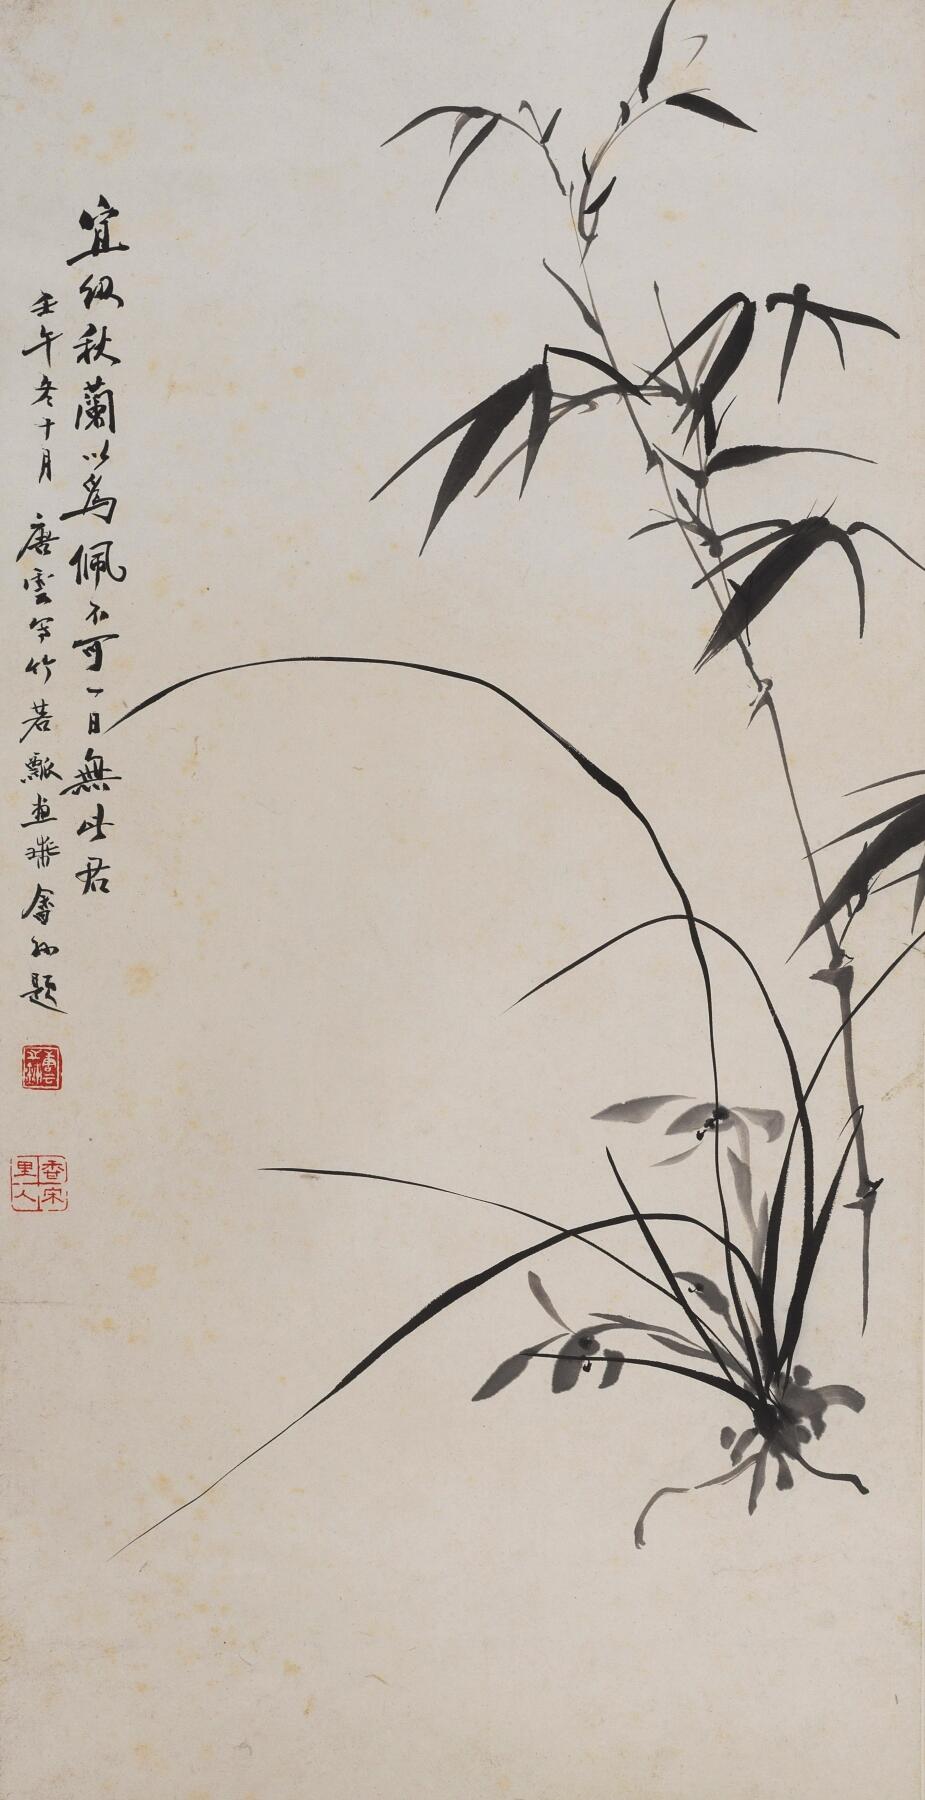 宜紉秋蘭以為佩不可一日無此君
壬午冬十月唐雲寫竹若瓢畫
題
香宋
里人